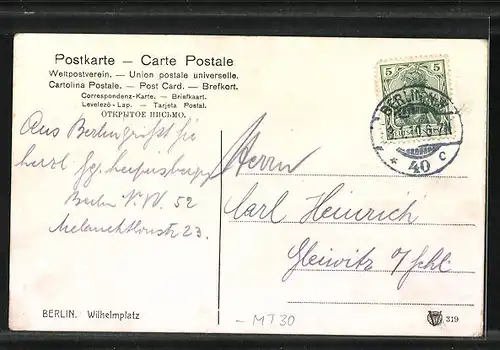 Postkarte — Carte Postale
Weltpostverein. — Union postale universelle.
Cartolina Postale. — Post Card. — Brefkort.
Correspondenz-Karte. — Briefkaart.
Levelezö-Lap. — Tarjeta Postal.
ОТКРЫТОЕ ПИСЬМО.
5 5
BERLIN
40 c
Aus Berlin grüßt Sie
herzl.
Berlin N.W. 52
Melanchthonstr 23.
Herrn
Carl Heinrich
Gleiwitz o/schl.
BERLIN. Wilhelmplatz
319
- MT30